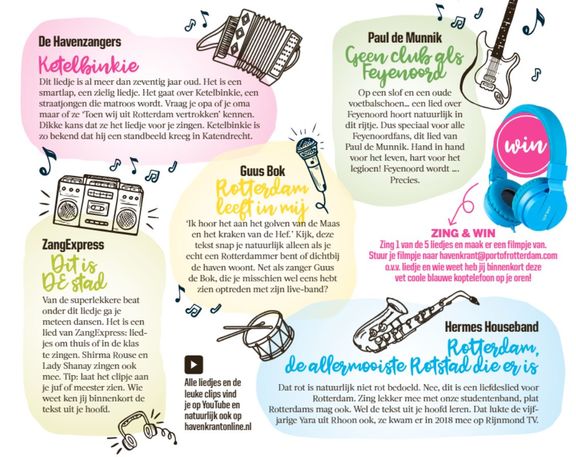 De Havenzangers
Ketelbinkie
Dit liedje is al meer dan zeventig jaar oud. Het is een
smartlap, een zielig liedje. Het gaat over Ketelbinkie, een
straatjongen die matroos wordt. Vraag je opa of je oma
maar of ze 'Toen wij uit Rotterdam vertrokken' kennen.
Dikke kans dat ze het liedje voor je zingen. Ketelbinkie is
zo bekend dat hij een standbeeld kreeg in Katendrecht.
Paul de Munnik
Geen club als
Feyenoord
Op een slof en een oude
voetbalschoen... een lied over
Feyenoord hoort natuurlijk in
dit rijtje. Dus speciaal voor alle
Feyenoordfans, dit lied van
Paul de Munnik. Hand in hand
voor het leven, hart voor het
legioen! Feyenoord wordt ....
Precies.
win
ZING & WIN
Zing 1 van de 5 liedjes en maak er een filmpje van.
Stuur je filmpje naar havenkrant@portofrotterdam.com
o.v.v. liedje en wie weet heb jij binnenkort deze
vet coole blauwe koptelefoon op je oren!
Guus Bok
Rotterdam
leeft in mij
'Ik hoor het aan het golven van de Maas
en het kraken van de Hef.' Kijk, deze
tekst snap je natuurlijk alleen als je
echt een Rotterdammer bent of dichtbij
de haven woont. Net als zanger Guus
de Bok, die je misschien wel eens hebt
zien optreden met zijn live-band?
ZangExpress
Dit is
DE stad
Van de superlekkere beat
onder dit liedje ga je
meteen dansen. Het is een
lied van ZangExpress: lied-
jes om thuis of in de klas
te zingen. Shirma Rouse en
Lady Shanay zingen ook
mee. Tip: laat het clipje aan
je juf of meester zien. Wie
weet ken jij binnenkort de
tekst uit je hoofd.
Alle liedjes en de
leuke clips vind
je op YouTube en
natuurlijk ook op
havenkrantonline.nl
Hermes Houseband
Rotterdam,
de allermooiste Rotstad die er is
Dat rot is natuurlijk niet rot bedoeld. Nee, dit is een liefdeslied voor
Rotterdam. Zing lekker mee met onze studentenband, plat
Rotterdams mag ook. Wel de tekst uit je hoofd leren. Dat lukte de vijf-
jarige Yara uit Rhoon ook, ze kwam er in 2018 mee op Rijnmond TV.